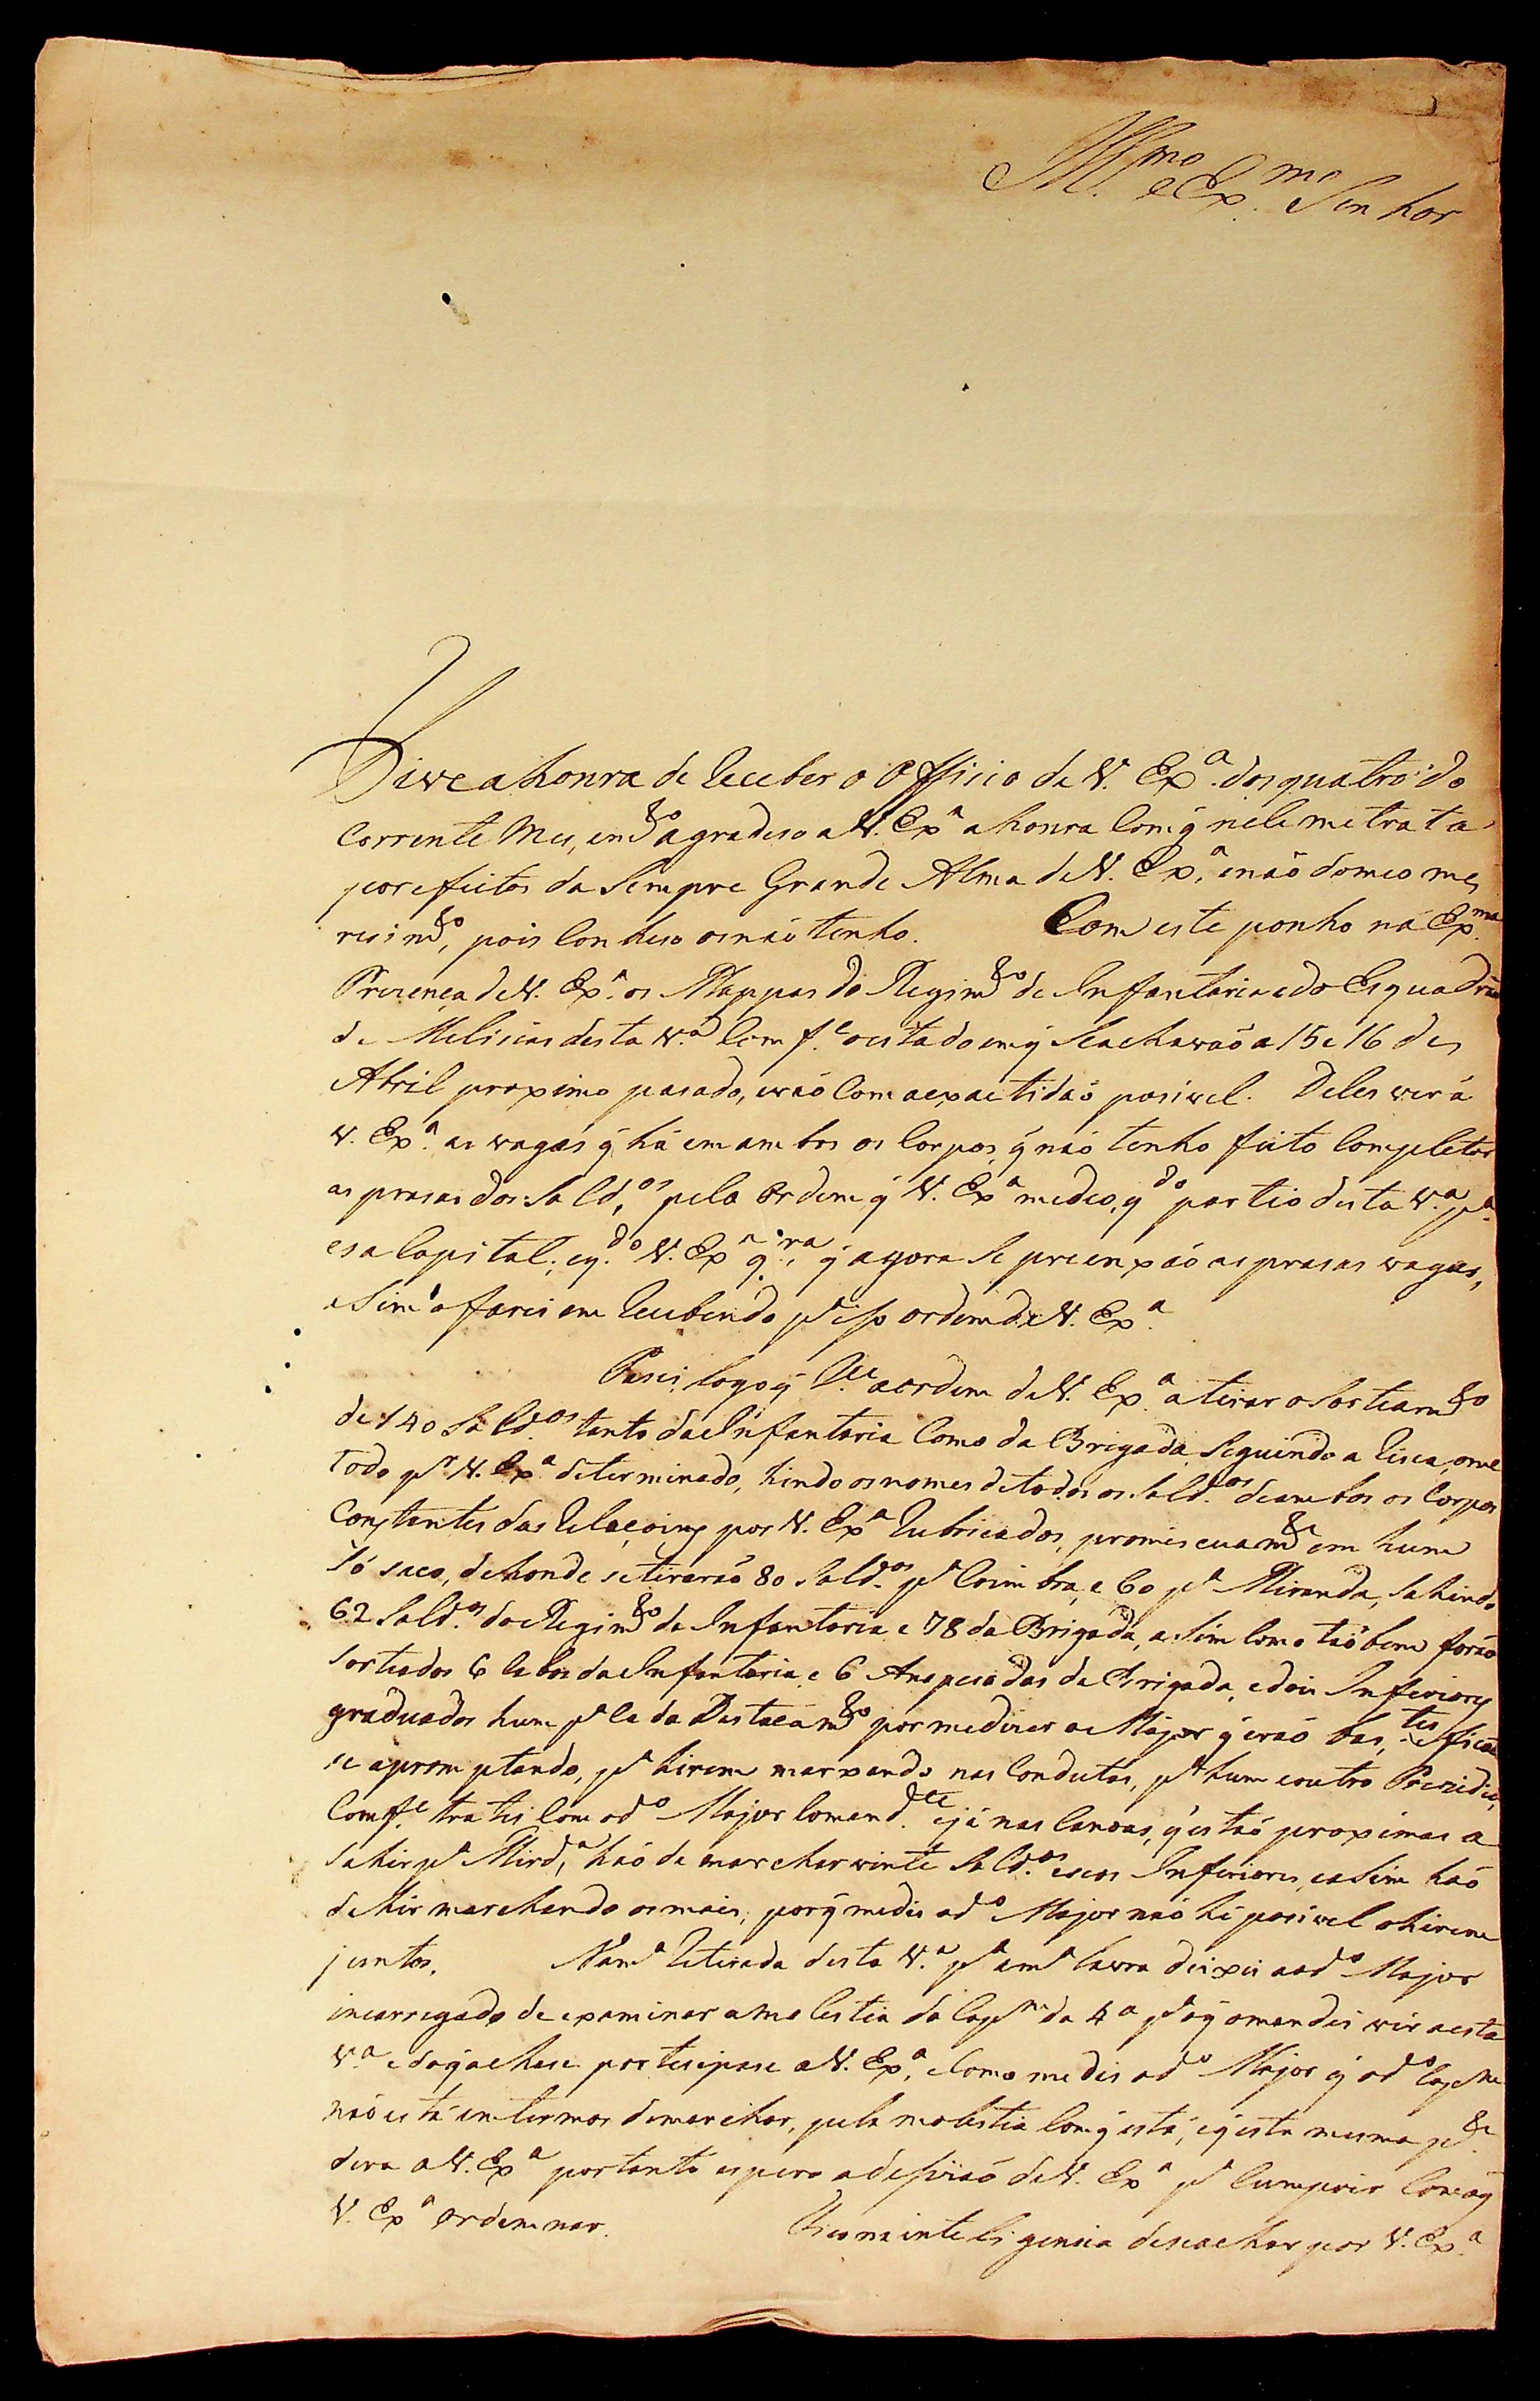 Ill.mo e Ex.mo Senhor
Tive a honra de receber o Officio de V. Ex.a dos quatro do
Corrente Mes, em d.o agradeso a V. Ex.a a honra Com q̃ nele me trata
por efeitos da Sempre Grande Alma de V. Ex.a, e naõ do meo me
resim.to, pois Conheso o naõ tenho. Com este ponho na Ex.ma
Prezença de V. Ex.a os Mappas do Regim.to de Infantaria e do Esquadraõ
de Melicias desta V.a Comf.e o estado em q̃ Se achavaõ a 15 e 16 de
Abril proximo pasado, e vaõ Com a expactidaõ posivel. Deles verá
V. Ex.a as vagas q̃ há em ambos os Corpos, q̃ naõ tenho feito Completar
as prasas dos Sold.os, pela Ordem q̃ V. Ex.a me deo, q.do partio desta V.a p.a
esa Capital; e q.do V. Ex.a q.ra q̃ agora Se preenxaõ as prasas vagas,
asim o farei em recebendo p.a iso ordem de V. Ex.a
Pasei logo q̃ R.ce a ordem de V. Ex.a a tirar o Sorteam.to
de 140 Sold.os tanto da Infantaria Como da Brigada Seguindo a risca, o me
todo p.r V. Ex.a determinado, hindo os nomes de todos os Sold.os de ambos os Corpos
Constantes das relaçoins por V. Ex.a rubricados, promiscuam.te em hum
Só saco, de honde se tiraraõ 80 Sold.os p.a Coimbra, e 60 p.a Miranda, Sahindo
62 Sold.os do Regim.to de Infantaria e 78 da Brigada, asim Como taõbem foraõ
Sorteados 6 Cabos da Infantaria, e 6 Anspesadas da Brigada, e dois Inferiores
graduados hum p.a Cada Destacam.to por me dizer o Major q̃ eraõ bas.tes, e ficaõ
se apromptando, p.a hirem marxando nas Condutas, p.a hum e outro Prezidio,
Comf.e tratei Com o d.o Major Comand.te e já nas Canoas, q̃ estaõ proximas a
Sahir p.a Mird.a, haõ de marchar vinte Sold.os e seos Inferiores, e asim haõ
de hir marchando os mais, por q̃ me diz o d.o Major naõ hé posivel o hirem
juntos. Na m.a retirada desta V.a p.a a m.a Lavra deixei ao d.o Major
incarregado de expaminar a molestia do Cap.m da 4.a p.a o q̃ o mandei vir a esta
V.a e do q̃ achase partesipase a V. Ex.a, e Como me diz o d.o Major q̃ o d.o Cap.m
naõ está em termos de marchar, pela molestia Com q̃ está, e q̃ esta mesma p.te
dera a V. Ex.a portanto espero a desizaõ de V. Ex.a p.a Cumprir Com o q̃
V. Ex.a ordenar. Fico na inteligencia de se achar por V. Ex.a